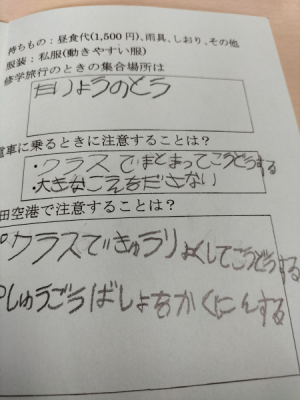 持ちもの：昼食代(1,500円)、雨具、しおり、その他
服装：私服(動きやすい服)
修学旅行のときの集合場所は
電車に乗るときに注意することは？
・クラスでまとまってこうどうする
・大きなこえをださない
田空港で注意することは？
○クラスできゅうりょくしてこうどうする
○しゅうごうばしょをかくにんする